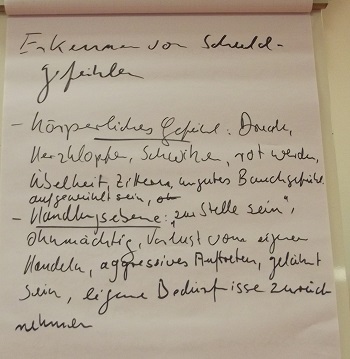 Erkennen von Schuld-
gefühlen
- Körperliches Gefühl: Druck,
Herzklopfen, Schwitzen, rot werden,
Übelkeit, Zittern, ungutes Bauchgefühl
aufgewühlt sein,
- Handlungsebene: "zur Stelle sein",
ohnmächtig, Verlust vom eigenen
Handeln, aggressives Auftreten, gelähmt
sein, eigene Bedürfnisse zurück
nehmen